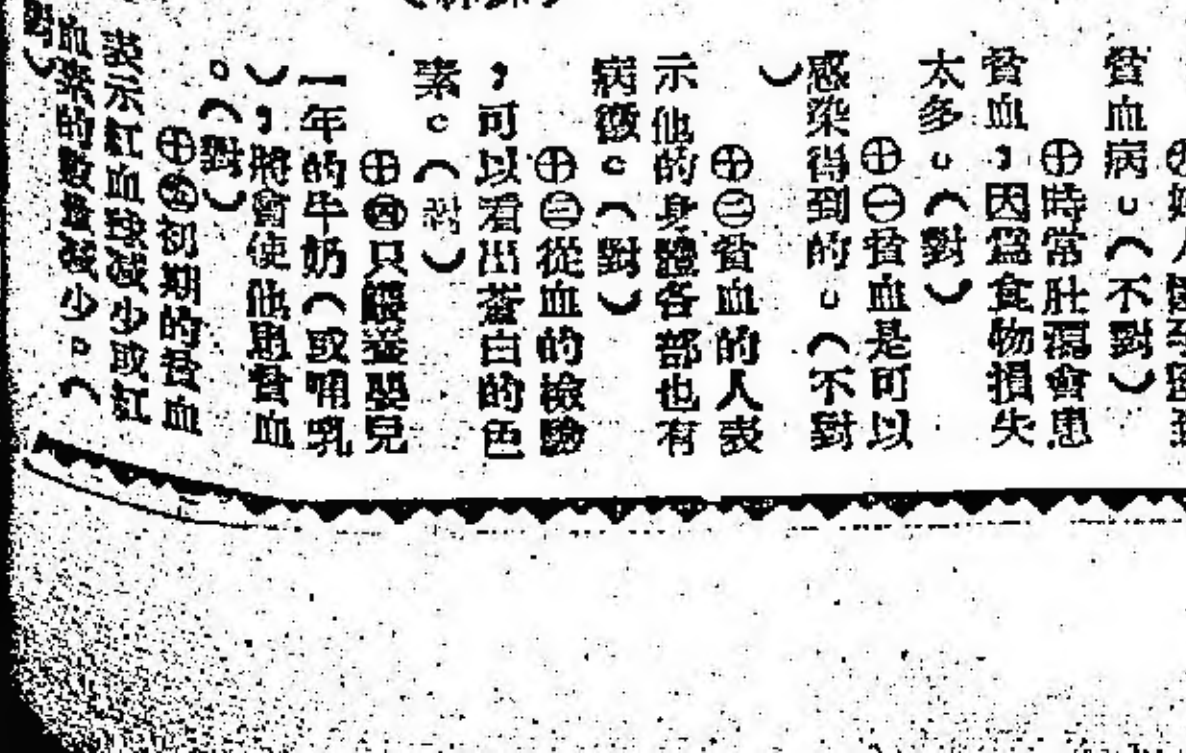 婦人懷孕
貧血病。(不對)
㊉時常肚瀉會患
貧血,因爲食物損失
太多。(對)
㊉㊀貧血是可以
感染得到的。(不對
)
㊉㊁貧血的人表
示他的身體各部也有
病徵。(對)
㊉㊂從血的檢驗
,可以看出蒼白的色
素。(對)
㊉㊃只餵養嬰兒
一年的牛奶(或哺乳
),將會使他患貧血
。(對)
㊉㊄初期的貧血
表示紅血球減少或紅
血素的數量減少。(
對)